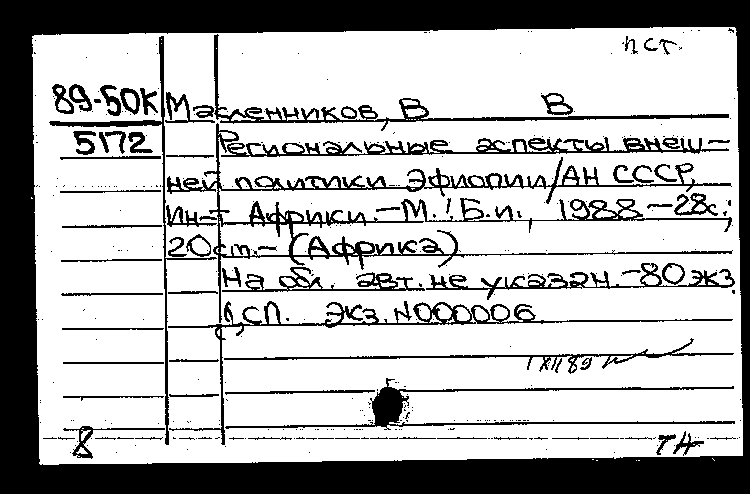 п ст.
89-50К Масленников, В В
5172 Региональные аспекты внеш-
ней политики Эфиопии/АН СССР,
Ин-т Африки.-М.: Б.и., 1988-28с.;
20см.- (Африка)
На обл. авт. не указан.-80экз
СП. Экз. N000006.
1 XII 89
8 ТА